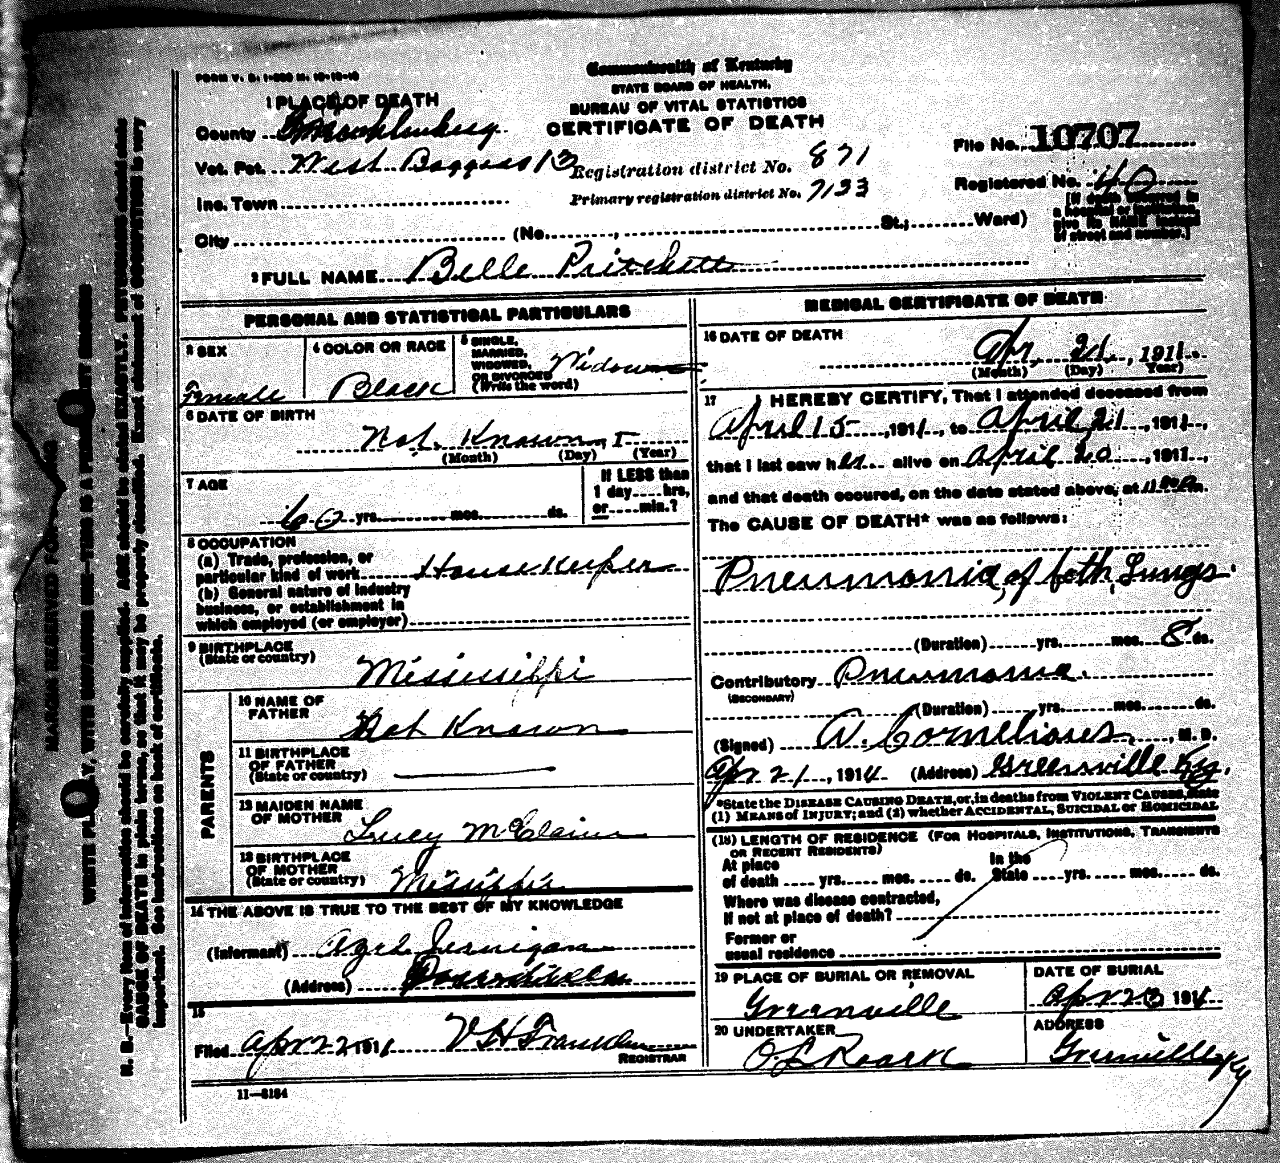 FORM V. S. 1-
Commonwealth of Kentucky
STATE BOARD OF HEALTH.
BUREAU OF VITAL STATISTICS
CERTIFICATE OF DEATH
1 PLACE OF DEATH
County Muhlenberg
Vot. Pct. West Boggess 13
Registration district No. 871
File No. 10707
Inc. Town
Primary registration district No. 7133
Registered No. 40
City (No. , St.; Ward)
[If death occurred in a hospital or institution, give its NAME instead of street and number.]
2 FULL NAME Belle Pritchett
PERSONAL AND STATISTICAL PARTICULARS
3 SEX
Female
4 COLOR OR RACE
Black
5 SINGLE,
MARRIED,
WIDOWED,
OR DIVORCED
(Write the word)
Widow
6 DATE OF BIRTH
Not Known
(Month) (Day) (Year)
7 AGE
60 yrs. mos. ds.
If LESS than
1 day hrs,
or min.?
8 OCCUPATION
(a) Trade, profession, or
particular kind of work House Keeper
(b) General nature of industry
business, or establishment in
which employed (or employer)
9 BIRTHPLACE
(State or country)
Mississippi
PARENTS
10 NAME OF
FATHER
Not Known
11 BIRTHPLACE
OF FATHER
(State or country)
12 MAIDEN NAME
OF MOTHER
Lucy McClain
13 BIRTHPLACE
OF MOTHER
(State or country)
Missippi
14 THE ABOVE IS TRUE TO THE BEST OF MY KNOWLEDGE
(Informant) Jernigan
(Address)
15
Filed Apr 22 191
V H Franklin
REGISTRAR
11—8184
MEDICAL CERTIFICATE OF DEATH
16 DATE OF DEATH
Apr. 21, 1911.
(Month) (Day) (Year)
17 I HEREBY CERTIFY, That I attended deceased from
April 15, 1911, to April 21, 1911,
that I last saw her alive on April 20, 1911,
and that death occured, on the date stated above, at m.
The CAUSE OF DEATH* was as follows:
Pneumonia, of both Lungs.
(Duration) yrs. mos. 8 ds.
Contributory Pneumonia.
(SECONDARY)
(Duration) yrs. mos. ds.
(Signed) W. Cornelious, M. D.
Apr 21, 1914 (Address) Greenville Ky.
*State the DISEASE CAUSING DEATH, or, in deaths from VIOLENT CAUSES, state
(1) MEANS OF INJURY; and (2) whether ACCIDENTAL, SUICIDAL or HOMICIDAL
(18) LENGTH OF RESIDENCE (FOR HOSPITALS, INSTITUTIONS, TRANSIENTS
OR RECENT RESIDENTS)
At place In the
of death yrs. mos. ds. State yrs. mos. ds.
Where was disease contracted,
if not at place of death?
Former or
usual residence
19 PLACE OF BURIAL OR REMOVAL
Greenville
DATE OF BURIAL
Apr 23 1914
20 UNDERTAKER
O L Roark
ADDRESS
Greenville Ky
MARGIN RESERVED FOR BINDING
WRITE PLAINLY, WITH UNFADING INK—THIS IS A PERMANENT RECORD
N. B.—Every item of information should be carefully supplied. AGE should be stated EXACTLY. PHYSICIANS should state
CAUSE OF DEATH in plain terms, so that it may be properly classified. Exact statement of OCCUPATION is very
important. See instructions on back of certificate.